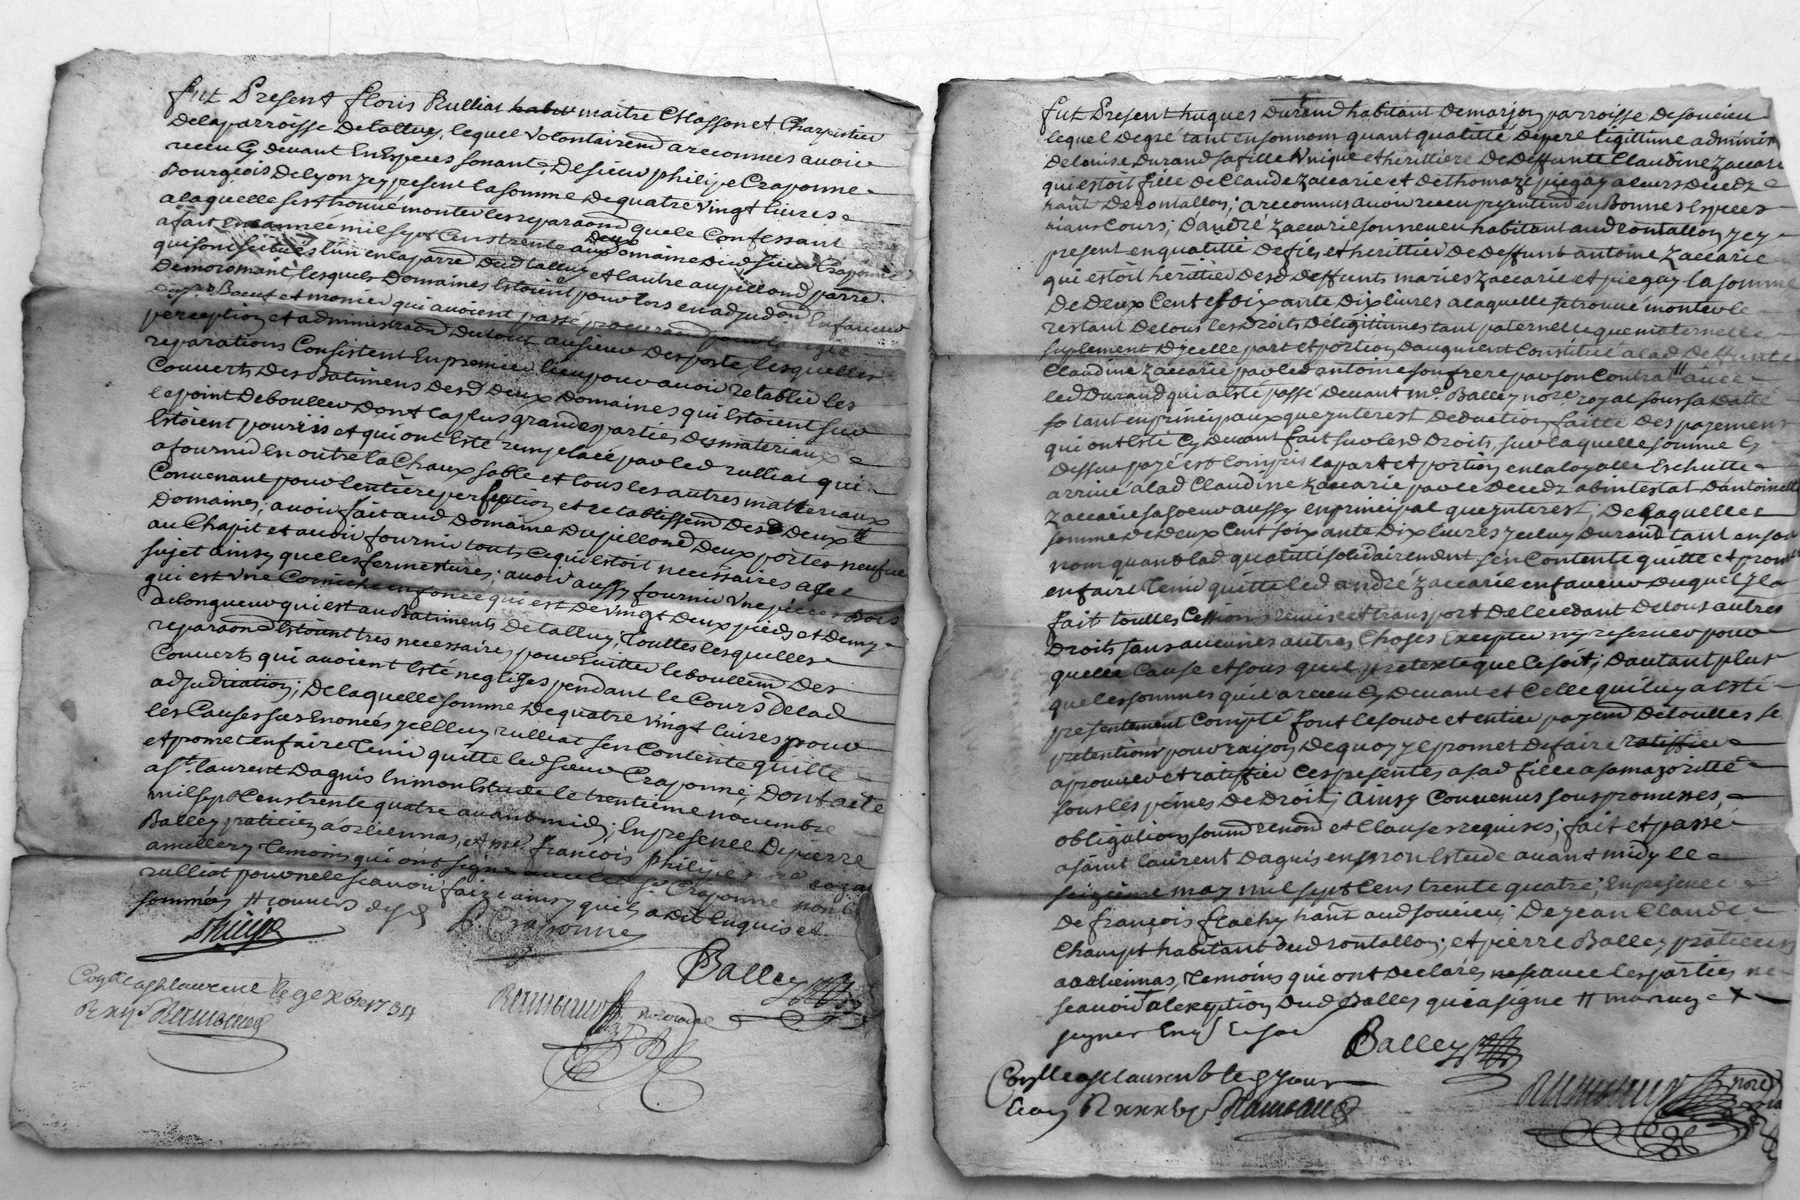 fut Present floris Rulliat habit maitre Chasson et Charpentier
delaparroisse detalluy, lequel volontairemt areconnus avoir
receu Cy devant En Especes sonant, Desieur philipe Craponne
Bourgeois delyon yey present lasomme dequatre vingt livres
alaquelle sest trouvé monter lesreparaons quele Confessant
afait En année mil sept Cens trente deux aux Domaine dud sieur Craponne
quisont scitués l'un enlaparre dud talluy et lautre aupillond parre
demoromant, lesquels Domaines Estoient pour lors en adjudon Enfaveur
Bœuf et monier qui avoient passé
perception et administraon dutout ausieur desporte, lesquelles
reparations Consistent Enpremier lieu pour avoir retablir les
Couverts des Batimens desd deux domaines qui Estoient sur
lepoint deboulleer dont laplus grande partie des materiaux
Estoient pourris et qui ont Esté remplacé par led rulliat qui
afourni En outre la Chaux sable et tous les autres matteriaux
Convenant pour lentiere perfection et retablissemt desd deux
Domaines, avoir fait aud domaine dupillond deux portes neufve
au Chapit et avoir fourni tout Cequi Estoit necessaires a Ce
sujet ainsy que les fermettures; avoir aussy fourni une piece Bois
qui est une Corniche enfonce qui est de vingt deux pieds et demy
delongueur qui est au Batiments de talluy, Touttes lesquelles
reparaons Estoient tres necessaires pour Eviter leboullemt des
Couverts qui avoient Esté negligés pendant le Cours de lad
adjudication; de laquelle somme de quatre vingt livres pour
les Causes sus Enoncés yelluy rulliat sen Contente quitte
et promet en faire Tenir quitte led sieur Craponne; Dont acte
a st. laurent dagnis En mon Estude le trentieme novembre
mil sept Cens trente quatre avant midi; En presence de pierre
Balley praticien a orliennas, et me. francois philipe nore royal
a millery Temoins qui ont signé avec led sr. Craponne non led
rulliat pour ne le scavoir faire ainsy quil a dit Enquis et
sommés
philipe
P. Craponne
Balley
Collé a st laurent le 9e Xbre 1734
fut Present hugues durand habitant demarjon parroisse desoucieu
lequel degré tant ensonnom quant qualitté depere legittime adminis
delouise durand safille unique et herittiere de deffunte Claudine Zaccari
qui estoit fille de Claude Zaccarie et de thomaze piegay aleurs decedz
hant derontallon; areconnus avoir receu presentemt en Bonnes Especes
aians Cours; d'andré Zaccarie sonneveu habitant aud rontallon yey
present en qualitté de fils et herittier de deffunt antoine Zaccarie
qui estoit herittier desd deffunts mariés Zaccarie et piegay la somme
de deux Cent soixante dix livres alaquelle setrouvé monter le
restant detous les droits delegittimes tant paternelle que maternelle
suplement dycelle part et portion daugment Constitué alad deffunte
Claudine Zaccarie par led antoine sonfrere par son Contrat avec
led durand qui a esté passé devant me. Balley nore royal soussa datte
so tant en principaux que ynterest deduction faitte des payement
qui ont esté Cy devant fait sur lesd droits, sur laquelle somme Cy
dessus payé est Compris lapart et portion en laloyalle Eschutte
arrivé alad Claudine Zaccarie par le decedz abintestat dantoinette
Zaccarie sasoeur aussy en principal que ynterest; De laquelle
somme de deux Cent soixante dix livres yceluy durand tant en son
nom quant lad qualitté solidairement sen Contente quitte et promet
en faire Tenir quitte led andré Zaccarie en faveur duquel yl a
fait touttes Cessions remise et transport de le cedant detous autres
droits sans aucunes autres Choses Excepter ny reserver pour
quelle Cause et sous quel pretexte que Ce soit; dautant plus
que les sommes quil areceu Cy devant et Celle qui luy a esté
presentement Compté font lesoude et entier payemt detouttes se
pretentions pour raison de quoy yl promet de faire ratiffier
aprouver et ratiffier Ces presentes asad fille asamajoritté
sous les peines de droit; ainsy Convenus sous promesses,
obligations soumd renond et Clauses requises; fait et passé
asaint laurent dagnis en mon Estude avant midy le
seizieme may mil sept Cens trente quatre; En presence
de françois flachy hant aud soucieu; de jean Claude
Champt habitant dud rontallon; et pierre Balley praticien
aorliennas, Temoins qui ont declarés ne scavoir les parties ne
scavoir al exeption dud Balley qui a signé
signer Enqs
Balley
Collé a st laurent le